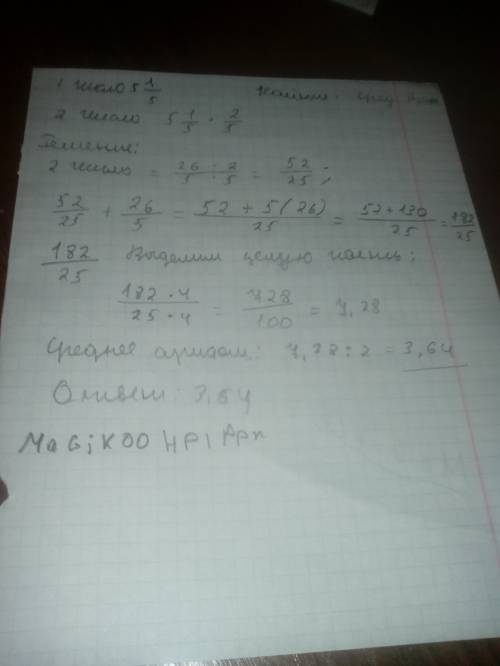 1 число 5 1/5 Найти: сред. Ариф
2 число 5 1/5 · 2/5
Решение:
2 число = 26 · 2 / 5 · 5 = 52/25;
52/25 + 26/5 = 52 + 5(26) / 25 = 52 + 130 / 25 = 182/25
182/25 Выделим целую часть:
182 · 4 / 25 · 4 = 728/100 = 7,28
Среднее арифм: 7,28 : 2 = 3,64
Ответ: 3,64